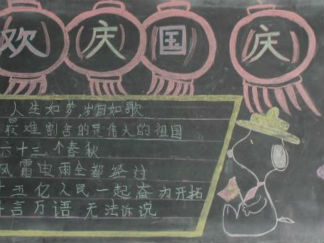 欢庆国庆
人生如梦,岁月如歌
最难割舍的是伟大的祖国
六十三个春秋
风雷虫雨全都经过
十五亿人民一起奋力开拓
言万语 无法诉说